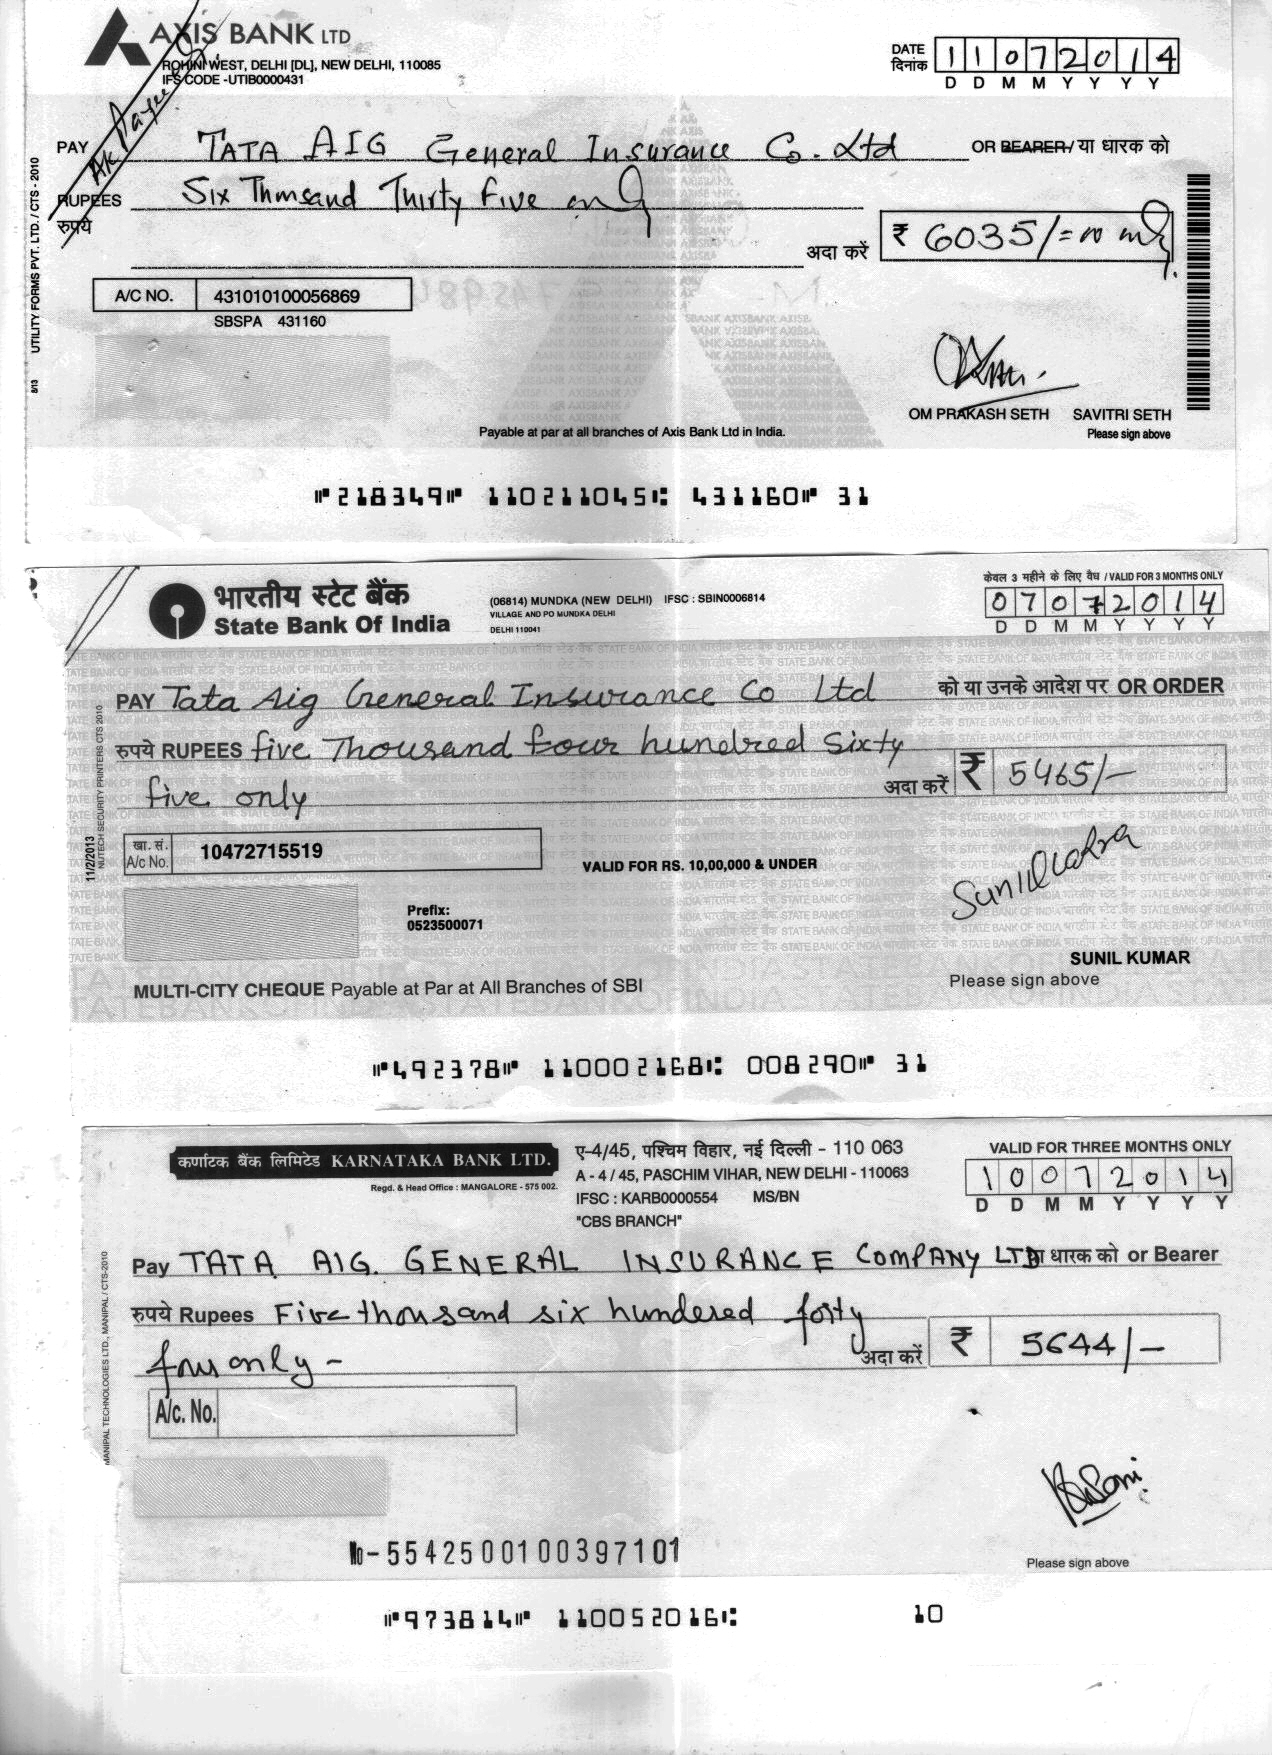 AXIS BANK LTD
ROHINI WEST, DELHI [DL], NEW DELHI, 110085
IFS CODE -UTIB0000431
DATE
दिनांक
11072014
D D M M Y Y Y Y
A/c Payee
PAY TATA AIG General Insurance Co. Ltd OR BEARER/ या धारक को
RUPEES Six Thousand Thirty Five only
रुपये
अदा करें ₹ 6035/=
A/C NO. 431010100056869
SBSPA 431160
UTILITY FORMS PVT. LTD. / CTS - 2010
8/13
OM PRAKASH SETH SAVITRI SETH
Please sign above
Payable at par at all branches of Axis Bank Ltd in India.
⑈218349⑈ 110211045⑆ 431160⑈ 31
भारतीय स्टेट बैंक
State Bank Of India
(06814) MUNDKA (NEW DELHI) IFSC : SBIN0006814
VILLAGE AND PO MUNDKA DELHI
DELHI 110041
केवल 3 महीने के लिए वैध / VALID FOR 3 MONTHS ONLY
07072014
D D M M Y Y Y Y
PAY Tata Aig General Insurance Co Ltd को या उनके आदेश पर OR ORDER
रुपये RUPEES five Thousand four hundred Sixty
five only अदा करें ₹ 5465/-
खा. सं.
A/c No. 10472715519
VALID FOR RS. 10,00,000 & UNDER
11/2/2013
NUTECH SECURITY PRINTERS CTS 2010
Prefix:
0523500071
SUNIL KUMAR
Please sign above
MULTI-CITY CHEQUE Payable at Par at All Branches of SBI
⑈492378⑈ 110002168⑆ 008290⑈ 31
कर्णाटक बैंक लिमिटेड KARNATAKA BANK LTD.
Regd. & Head Office : MANGALORE - 575 002.
ए-4/45, पश्चिम विहार, नई दिल्ली - 110 063
A - 4 / 45, PASCHIM VIHAR, NEW DELHI - 110063
IFSC : KARB0000554 MS/BN
"CBS BRANCH"
VALID FOR THREE MONTHS ONLY
10072014
D D M M Y Y Y Y
Pay TATA AIG. GENERAL INSURANCE COMPANY LTD या धारक को or Bearer
रुपये Rupees Five thousand six hundered forty
four only - अदा करें ₹ 5644/-
A/c. No.
MANIPAL TECHNOLOGIES LTD., MANIPAL / CTS-2010
No-5542500100397101
Please sign above
⑈973814⑈ 110052016⑆ 10